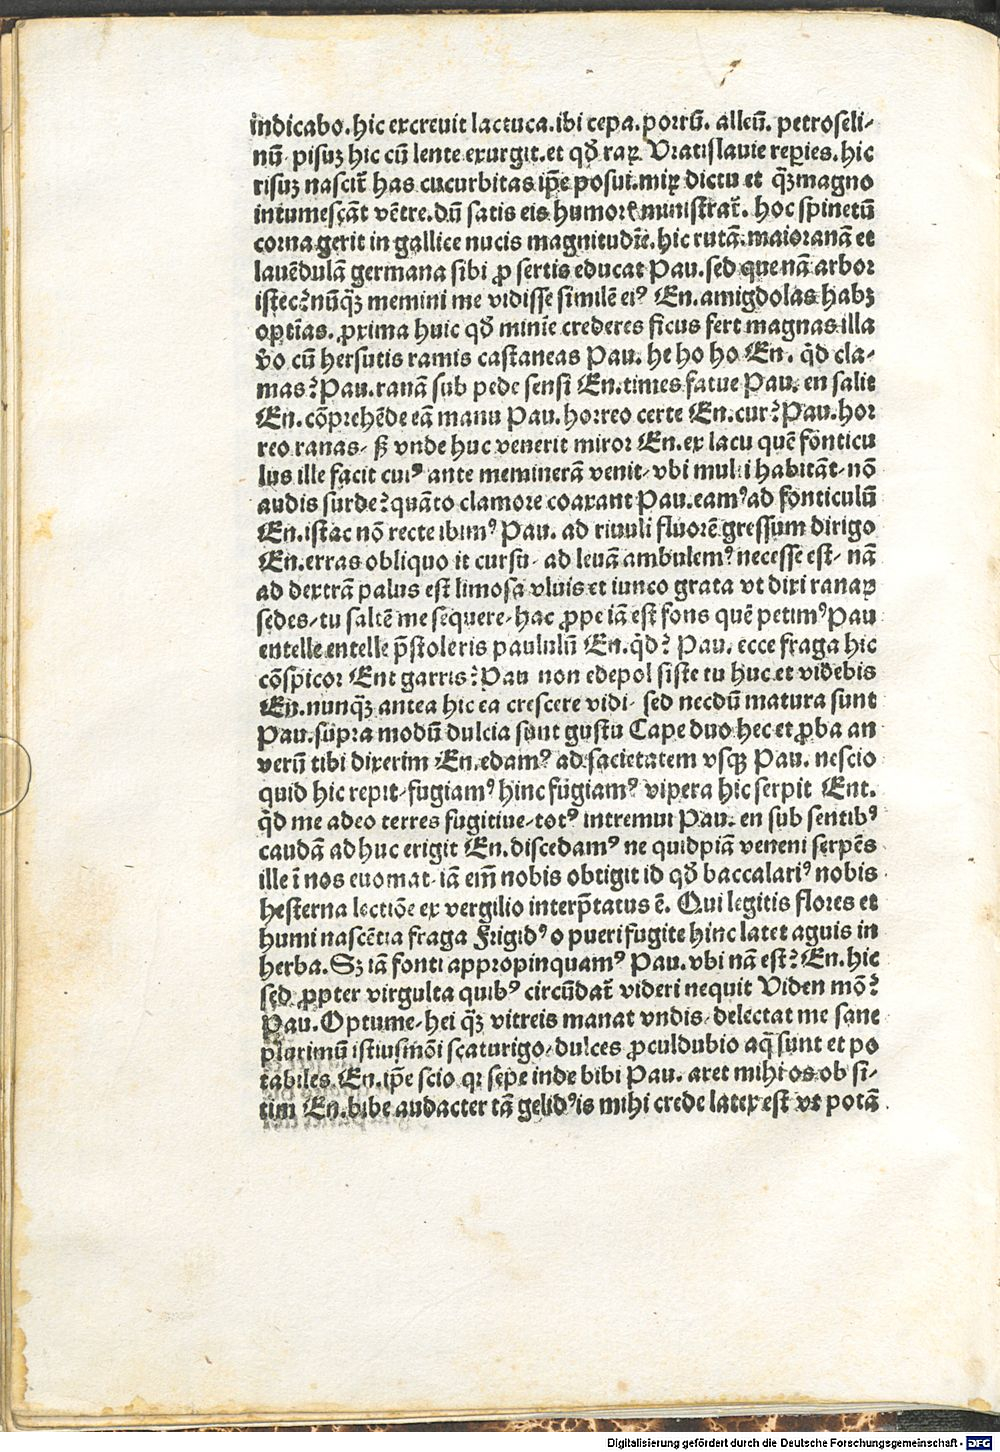 indicabo. hic excreuit lactuca. ibi cepa. porrū. alleū. petroseli-
nū. pisuʒ hic cū lente exurgit. et qđ raꝝ Vratislauie reꝑies. hic
risuʒ nascit᷑ has cucurbitas ip̄e posui. miꝝ dictu et qʒ̈ magno
intumescāt vētre. dū satis eis humorē ministrat᷑. hoc spinetū
corna gerit in gallice nucis magnitudīe. hic rutā. maioranā et
lauēdulā germana sibi ꝓ sertis educat Pau. sed que nā arbor
istec? nūqʒ̈ memini me vidisse similē eiꝰ En. amigdolas habʒ
optīas. ꝓxima huic qđ minīe crederes ficus fert magnas illa
v̄o cū hersutis ramis castaneas Pau. he ho ho En. qͥd cla-
mas? Pau. ranā sub pede sensi En. times fatue Pau. en salit
En. cōprehēde eā manu Pau. horreo certe En. cur? Pau. hor
reo ranas. ß vnde huc venerit miror En. ex lacu quē fonticu
lus ille facit cuiꝰ ante memineram venit. vbi multi habitāt. nō
audis surde? quāto clamore coaxant Pau. eamꝰ ad fonticulū
En. istac nō recte ibimꝰ Pau. ad riuuli fluorē gressum dirigo
En. erras obliquo it cursu. ad leuā ambulemꝰ necesse est. nā
ad dextrā palus est limosa vluis et iunco grata vt dixi ranaꝝ
sedes. tu saltē me sequere. hac ꝓpe iā est fons quē petimꝰ Pau
entelle entelle p̄stoleris paululū En. qͥd? Pau. ecce fraga hic
cōspicor Ent garris? Pau non edepol siste tu huc et videbis
En. nunqʒ̈ antea hic ea crescere vidi. sed necdū matura sunt
Pau. supra modū dulcia sunt gustu Cape duo hec et ꝓba an
verū tibi dixerim En. edamꝰ ad sacietatem vsqꝫ Pau. nescio
quid hic repit. fugiamꝰ hinc fugiamꝰ vipera hic serpit Ent.
qͥd me adeo terres fugitiue. totꝰ intremui Pau. en sub sentibꝰ
caudā adhuc erigit En. discedamꝰ ne quidpiā veneni serpēs
ille ī nos euomat. iā eim̄ nobis obtigit id qđ baccalariꝰ nobis
hesterna lectiōe ex vergilio interp̄tatus ē. Qui legitis flores et
humi nascētia fraga Frigidꝰ o pueri fugite hinc latet aguis in
herba. Sʒ iā fonti appropinquamꝰ Pau. vbi nā est? En. hic
sed ꝓpter virgulta quibꝰ circūdat᷑ videri nequit Viden mō?
Pau. Optume. hei qʒ̈ vitreis manat vndis. delectat me sane
plurimū istiusmōi scaturigo. dulces ꝓculdubio aq̄ sunt et po
tabiles En. ip̄e scio qꝛ sepe inde bibi Pau. aret mihi os ob si-
tim En. bibe audacter tā gelidꝰ is mihi crede latex est vt potā
Digitalisierung gefördert durch die Deutsche Forschungsgemeinschaft - DFG